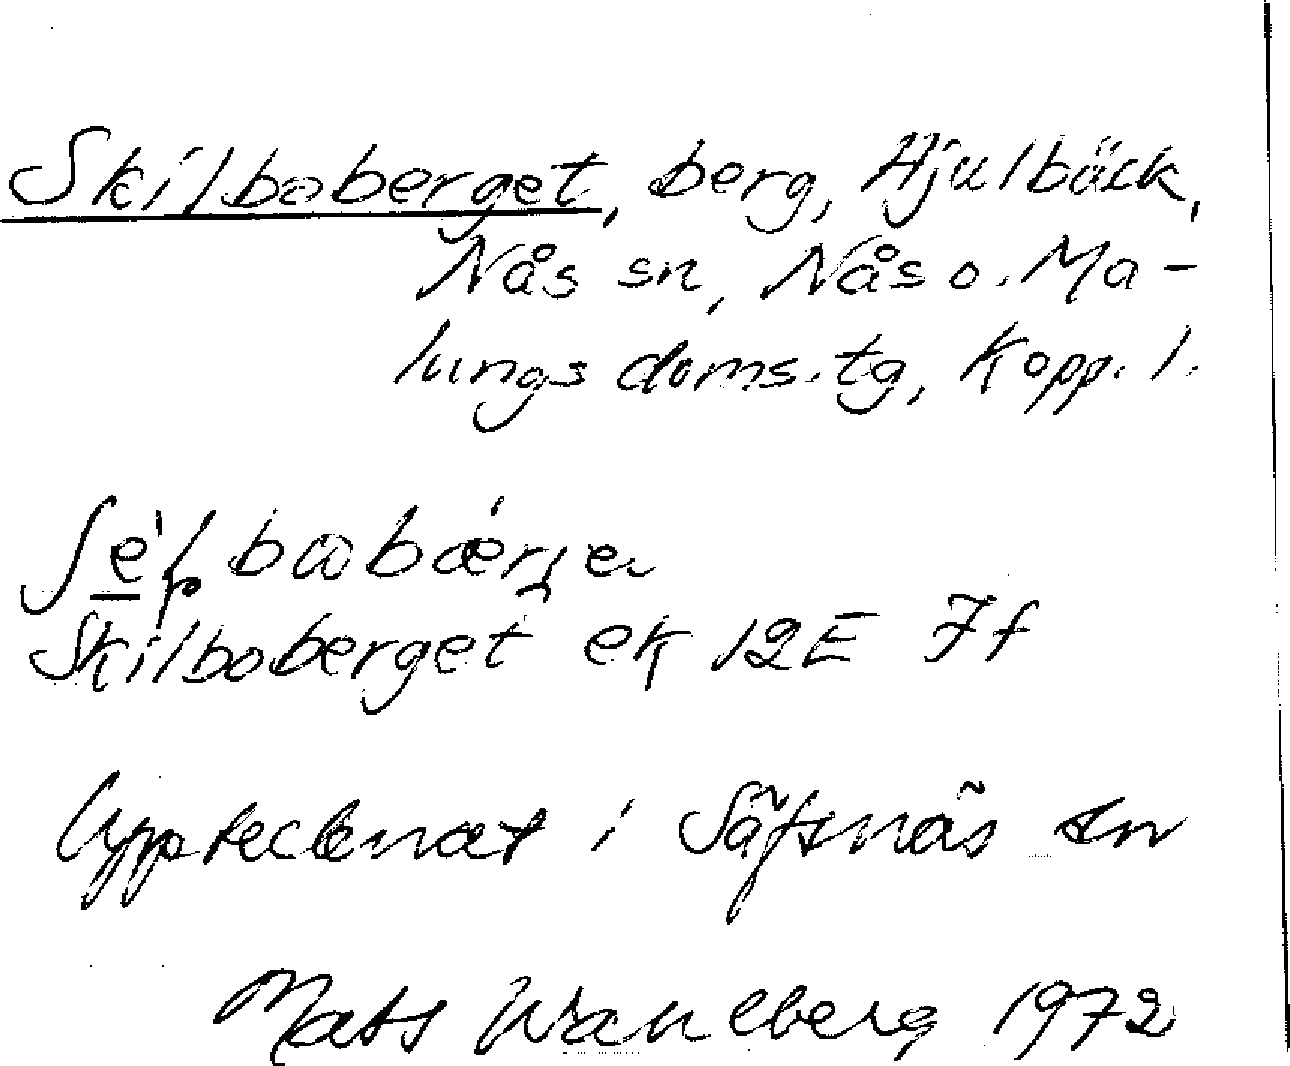 Skilboberget, berg, Hjulbäck,
Nås sn, Nås o. Ma-
lungs doms. tg, Kopp. l.
Skilboberget ek 12E 7f
Upptecknat i Säfsnäs sn
Mats Wahlberg 1972